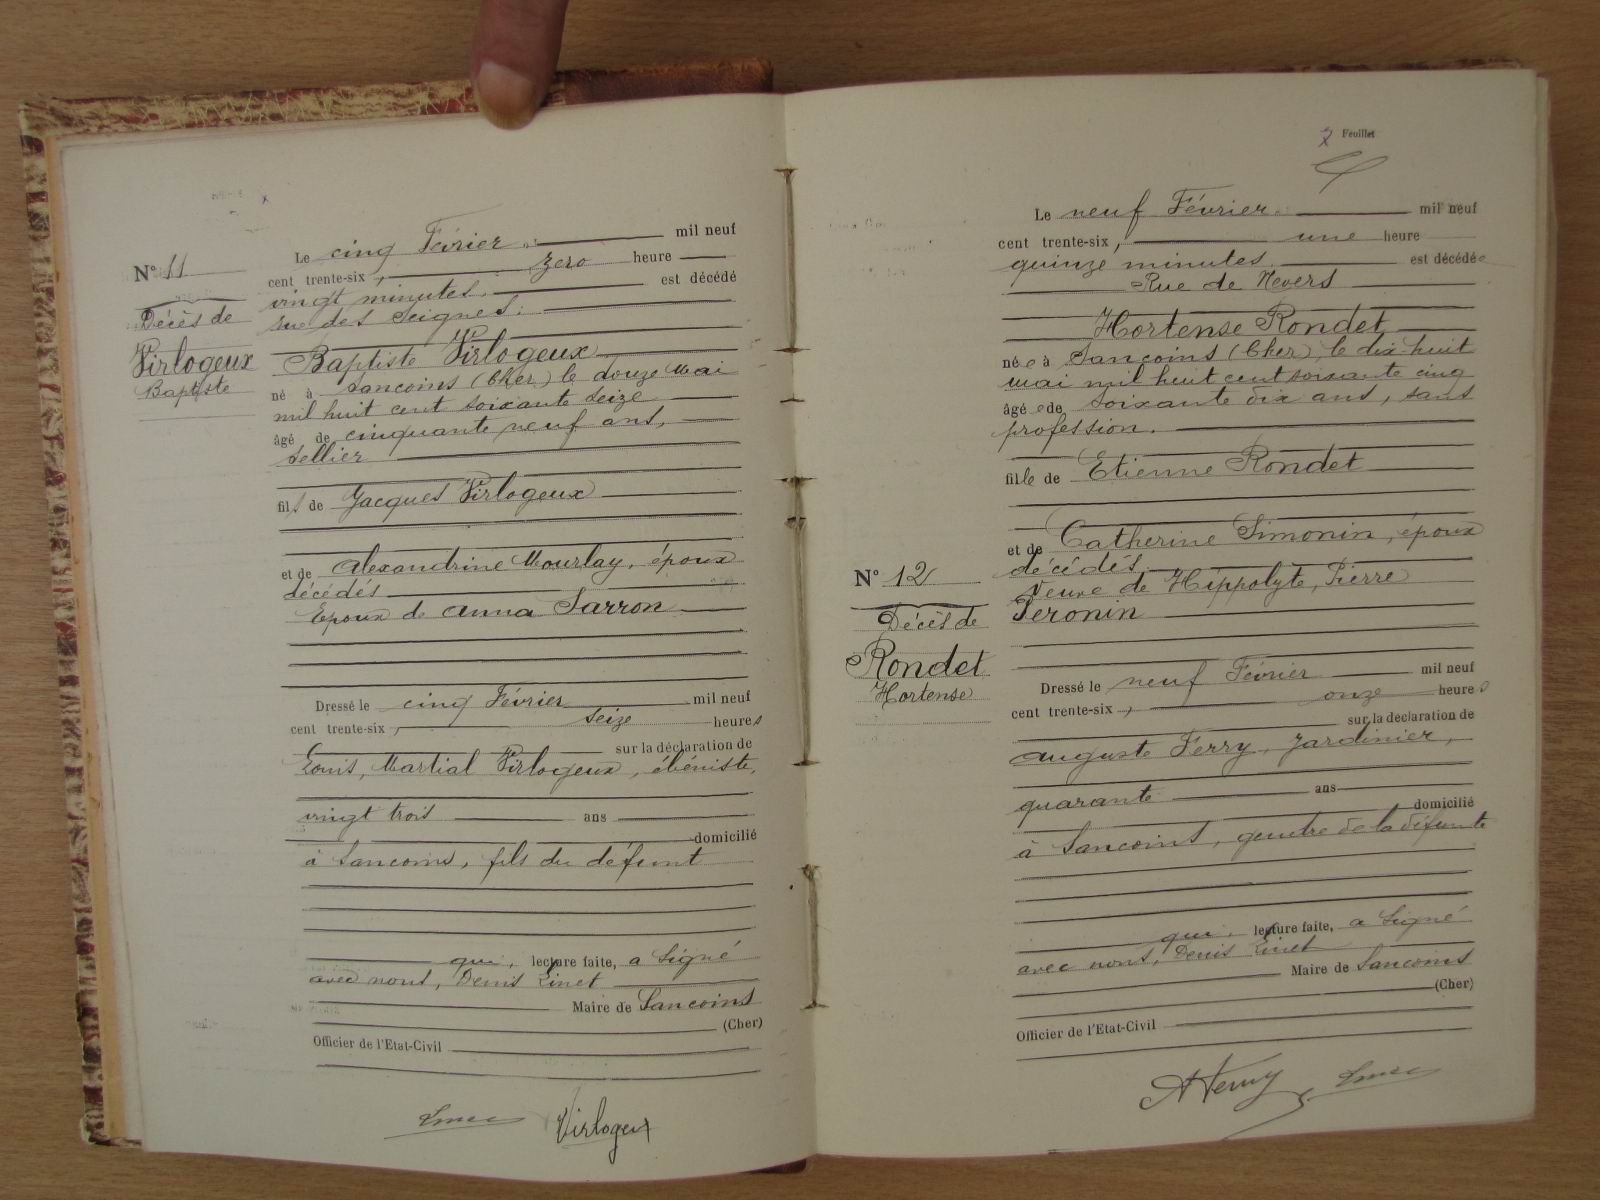 N° 11
Décès de
Virlogeux
Baptiste
Le cinq Février mil neuf
cent trente-six, zero heure
vingt minutes, est décédé
rue des Seignes,
Baptiste Virlogeux
né à Sancoins (Cher) le douze Mai
mil huit cent soixante seize
âgé de cinquante neuf ans,
sellier
fils de Jacques Virlogeux
et de Alexandrine Mourlay, époux
décédés
Epoux de Anna Sarron
Dressé le cinq Février mil neuf
cent trente-six, seize heures
sur la déclaration de
Louis, Martial Virlogeux, ébéniste,
vingt trois ans
domicilié
à Sancoins, fils du défunt
qui, lecture faite, a signé
avec nous, Denis Linet
Maire de Sancoins
(Cher)
Officier de l'Etat-Civil
Virlogeux
7 Feuillet
N° 12
Décès de
Rondet
Hortense
Le neuf Février mil neuf
cent trente-six, une heure
quinze minutes est décédée
Rue de Nevers
Hortense Rondet
née à Sancoins (Cher) le dix-huit
mai mil huit cent soixante cinq
âgée de soixante dix ans, sans
profession.
fille de Etienne Rondet
et de Catherine Simonin, époux
décédés.
Veuve de Hippolyte, Pierre
Peronin
Dressé le neuf Février mil neuf
cent trente-six, onze heures
sur la déclaration de
Auguste Ferry, jardinier,
quarante ans
domicilié
à Sancoins, gendre de la défunte
qui, lecture faite, a signé
avec nous, Denis Linet
Maire de Sancoins
(Cher)
Officier de l'Etat-Civil